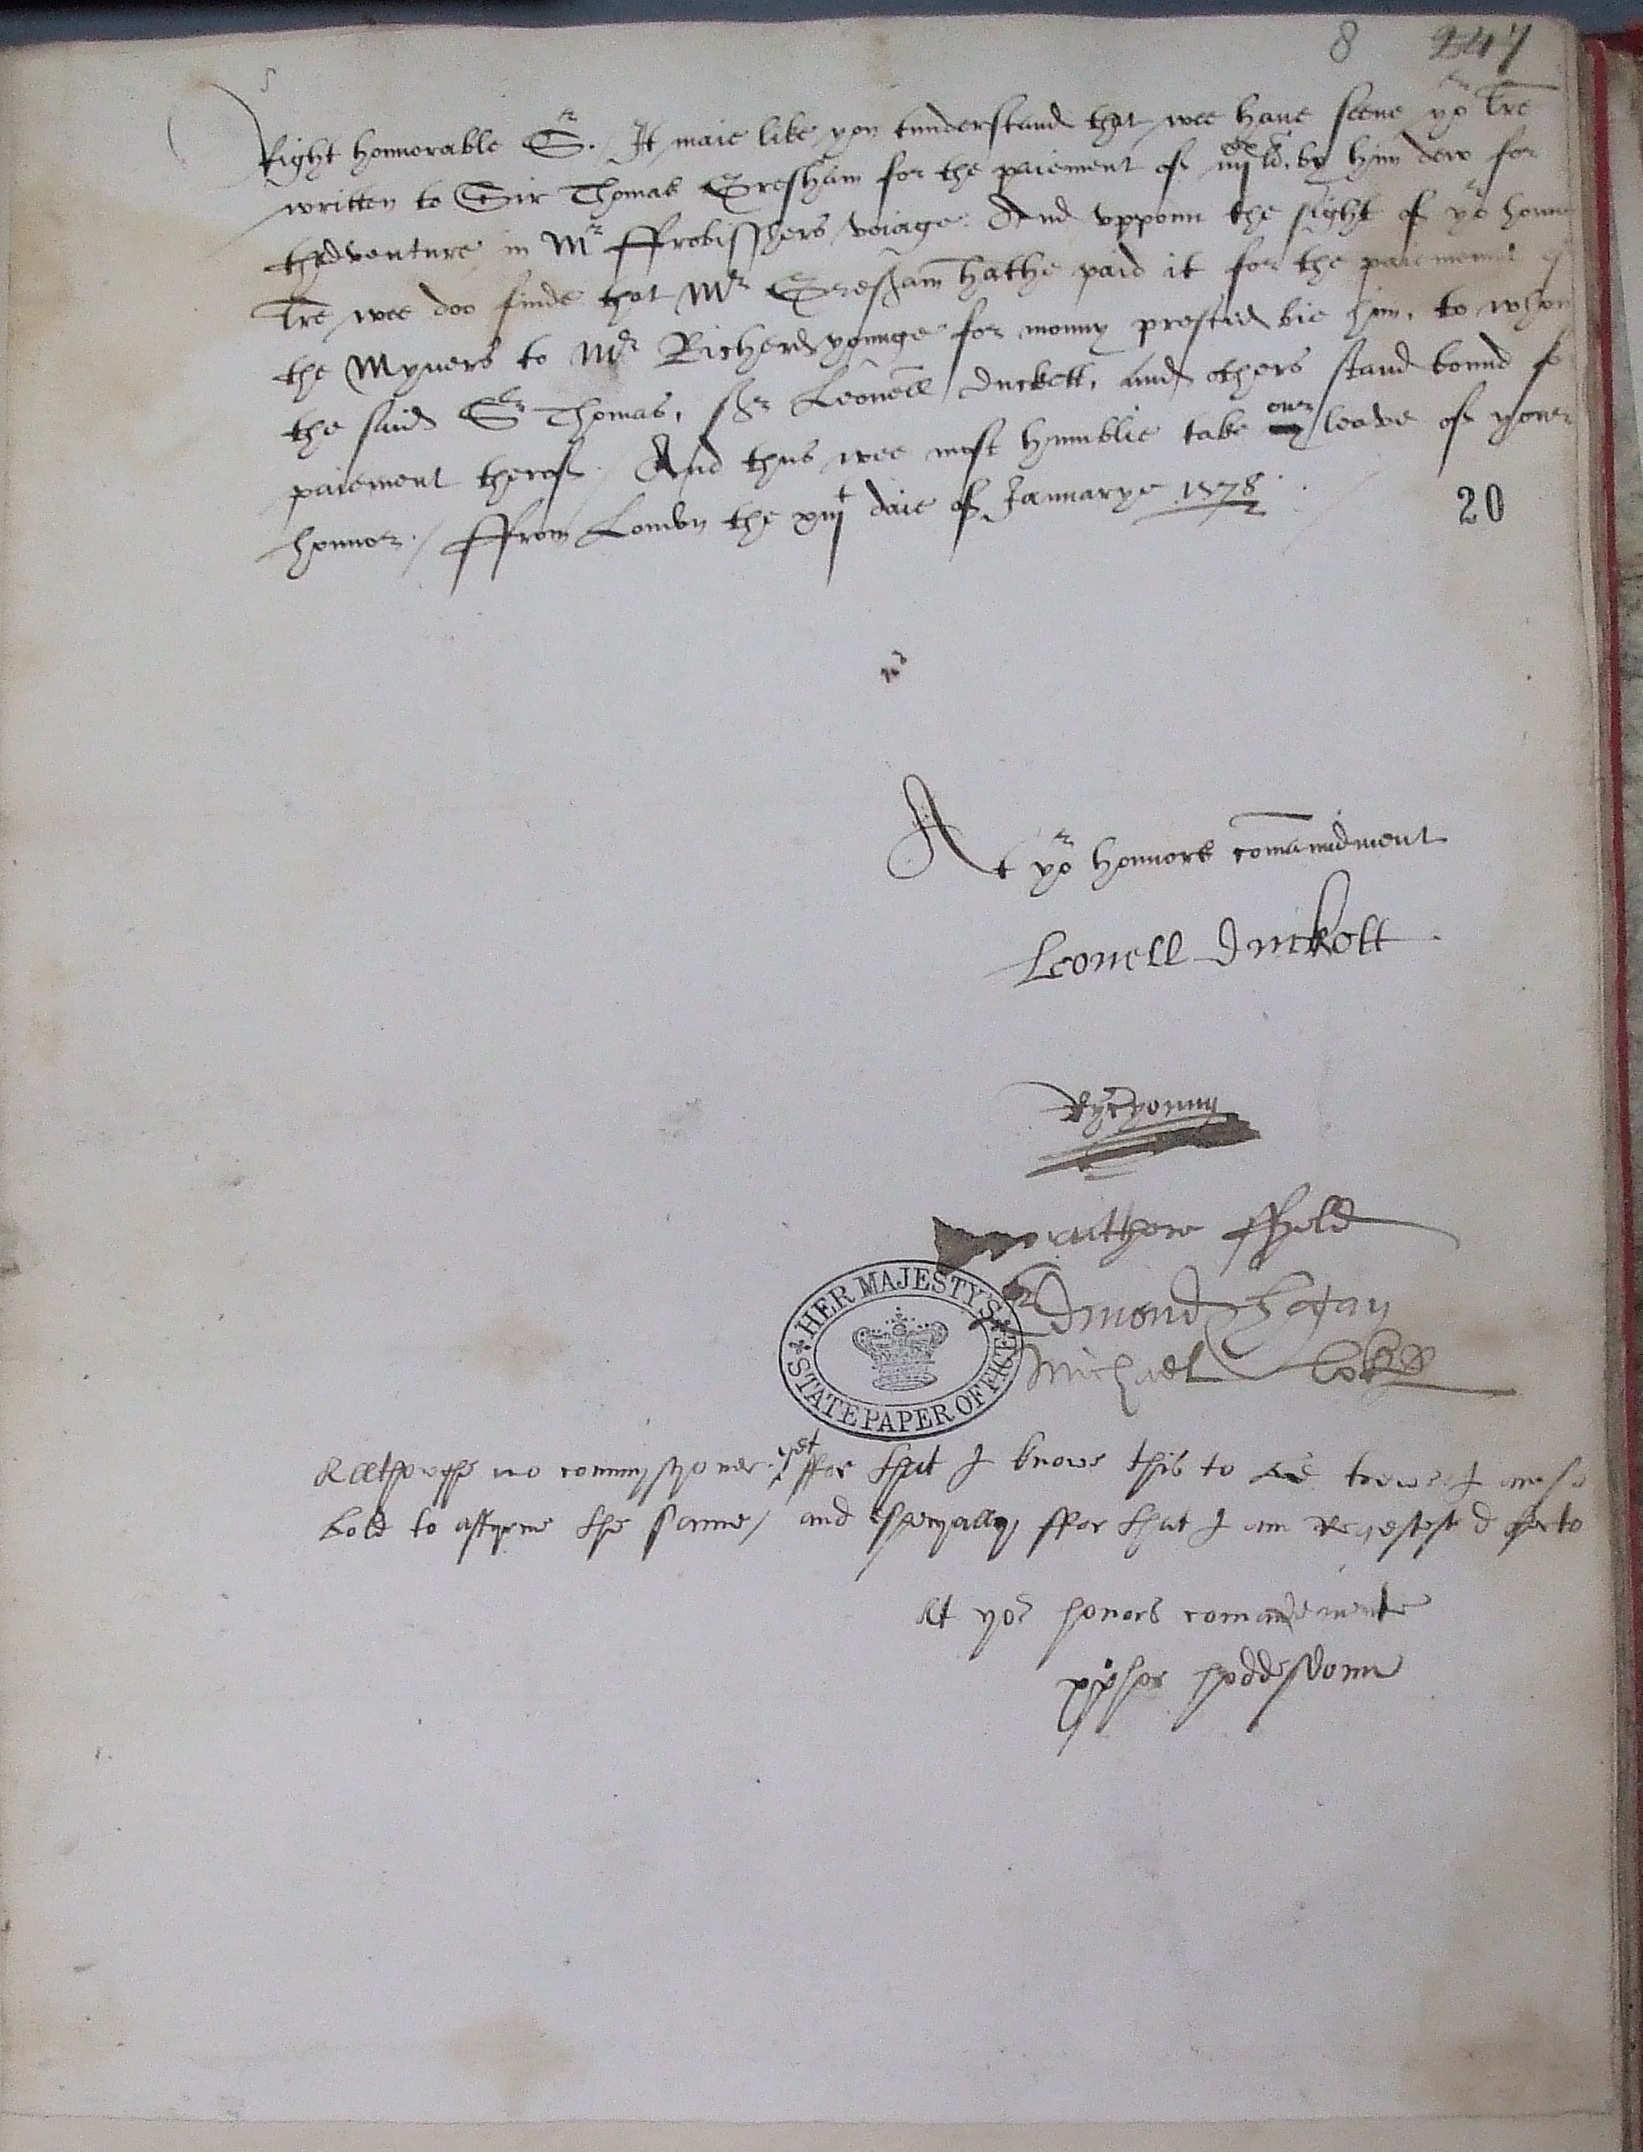 8 247
Right honnorable Sr. It maie like you tunderstand that wee have seene yor lre
written to Sir Thomas Gresham for the paiement of iiijxx li. by him dew for
thadventure in Mr ffrobisshers voiage. And vpponn the sight of yor honn
lre wee doo finde that Mr Gresham hathe paid it for the paiement of
the Myners to Mr Richerd younge for monny prested bie him, to whom
the said Sr Thomas, Sr Leonell Duckett, and others stand bound fo
paiement therof. And thus wee most humblie take over leave of yower
honnor. / ffrom London the xiijt daie of Januarye 1578.
20
At yor honnors comanndment
Leonell Duckett
Ryc yonng
mathew ffyeld
Edmond Hogan
Michael Lok
HER MAJESTY'S STATE PAPER OFFICE
Allthoughe no commyssyoner yet ffor that I knowe this to be trewe I am so
bold to affyrme the same / and specyally ffor that I am Requested herto
At yor honors comandemente
xpofer hoddesdonn